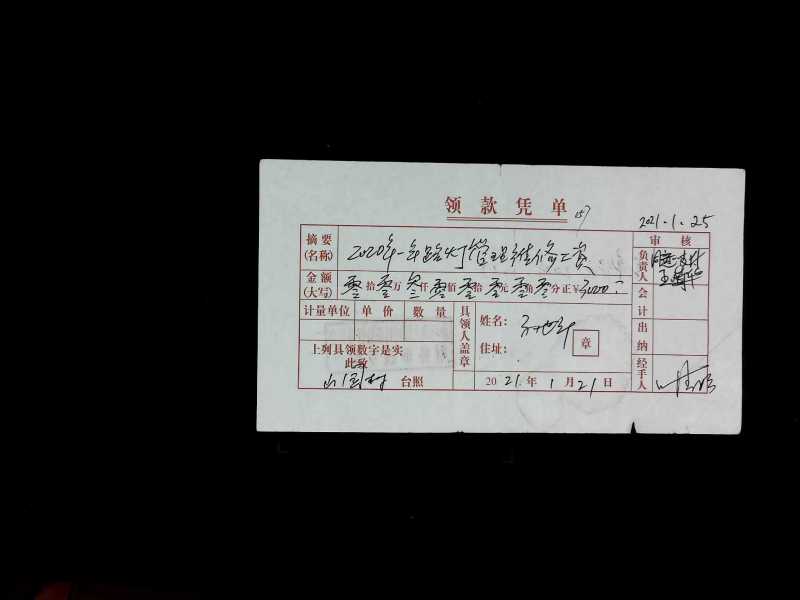 领款凭单
2021.1.25
摘要(名称) 2020年一年路灯管理维修工资
审核
金额(大写) 零拾零万叁仟零佰零拾零元零角零分正¥3000
负责人
计量单位 单价 数量
具领人盖章
姓名:
住址:
章
会计
出纳
上列具领数字是实
此致
台照
2021年1月21日
经手人